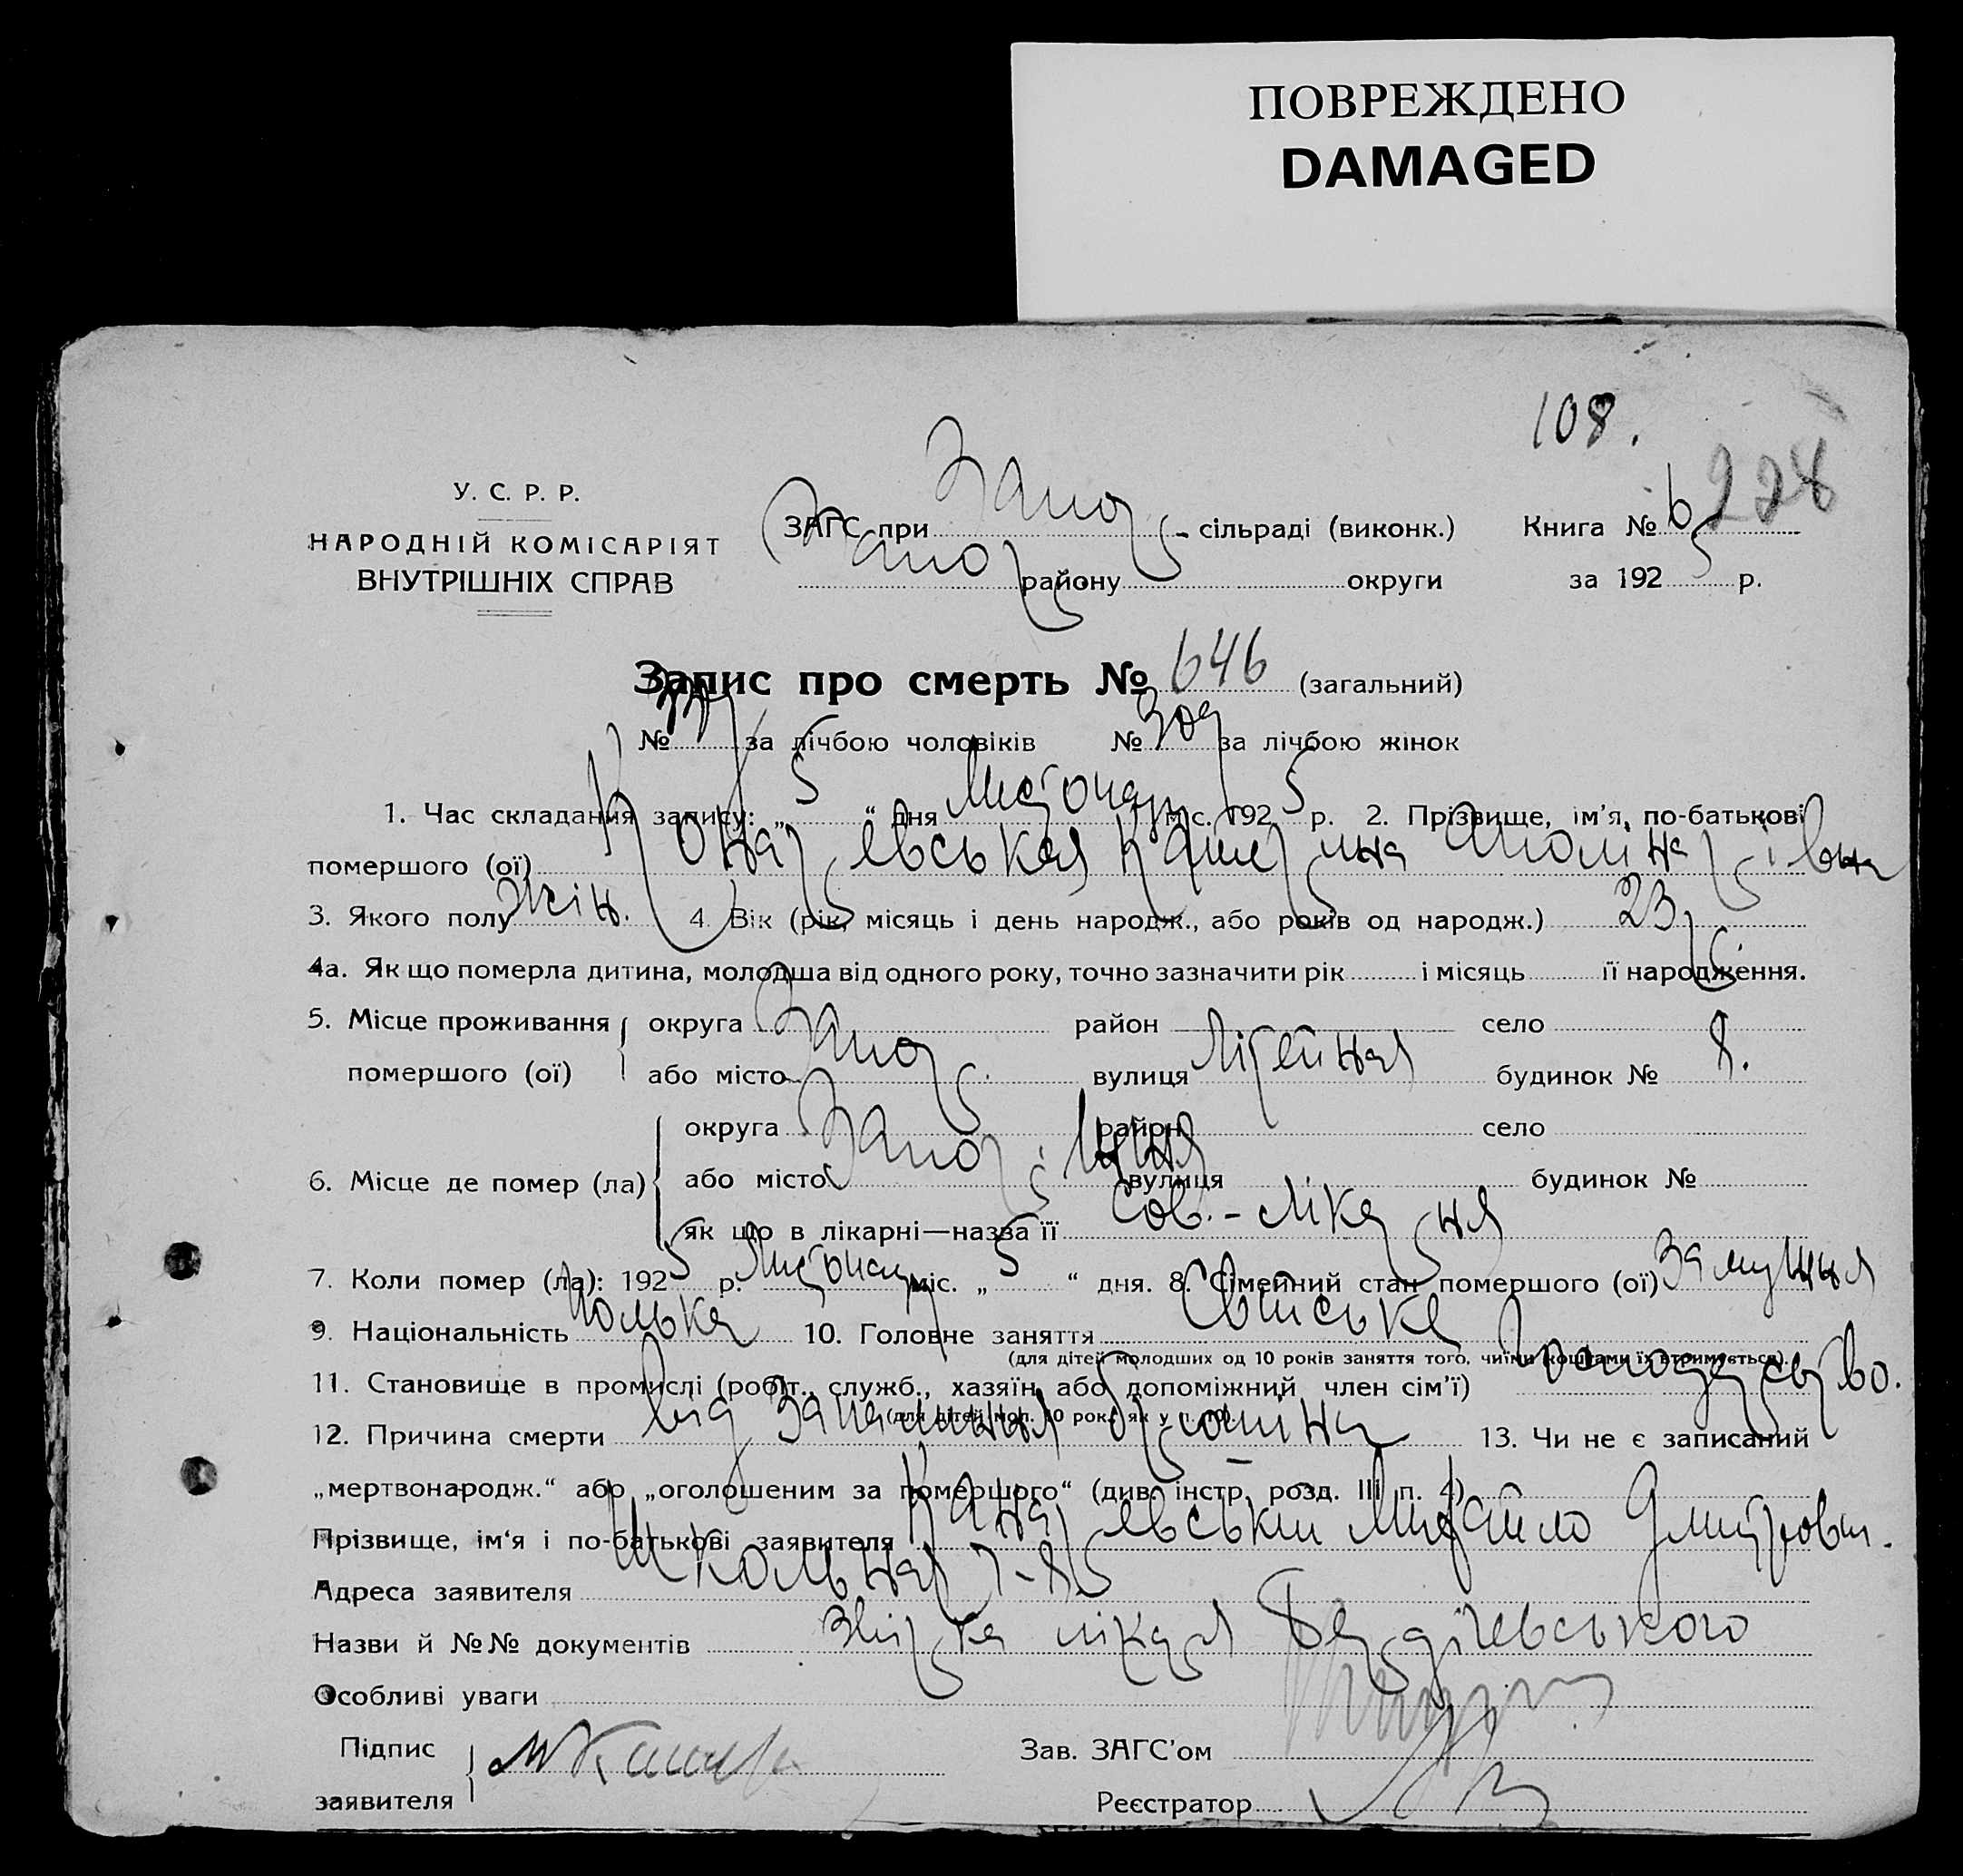 ПОВРЕЖДЕНО
DAMAGED
108.
228
У. С. Р. Р.
НАРОДНІЙ КОМІСАРІЯТ
ВНУТРІШНІХ СПРАВ
ЗАГС при Запор - сільраді (виконк.) Книга № 6
Запор району округи за 1925 р.
Запис про смерть № 646 (загальний)
№ за лічбою чоловіків № 309 за лічбою жінок
1. Час складання запису: „ 5 “ дня Листопад міс. 1925 р. 2. Прізвище, ім'я, по-батькові
помершого (ої) Катерина Аполінаріївна
3. Якого полу жін. 4. Вік (рік, місяць і день народж., або років од народж.) 23 р.
4а. Як що померла дитина, молодша від одного року, точно зазначити рік і місяць її народження.
5. Місце проживання округа Запор. район село
помершого (ої) або місто вулиця Літейная будинок № 8.
округа Запор. район село
6. Місце де помер (ла) або місто вулиця будинок №
як що в лікарні—назва її Сов.-лікарня
7. Коли помер (ла): 1925 р. Листопад міс. „ 5 “ дня. 8. Сімейний стан помершого (ої) замужня
9. Національність полька 10. Головне заняття
(для дітей молодших од 10 років заняття того, чиїми коштами їх втримується).
11. Становище в промислі (робіт., служб., хазяїн або допоміжний член сім'ї)
(для дітей мол. 10 рок. як у п. 10).
12. Причина смерти від запалення 13. Чи не є записаний
„мертвонародж.“ або „оголошеним за помершого“ (див. інстр. розд. III п. 4)
Прізвище, ім'я і по-батькові заявителя Михайло Дмитрович.
Адреса заявителя Школьная
Назви й №№ документів лікаря Бердічевського
Особливі уваги
Підпис Зав. ЗАГС'ом
заявителя Реєстратор